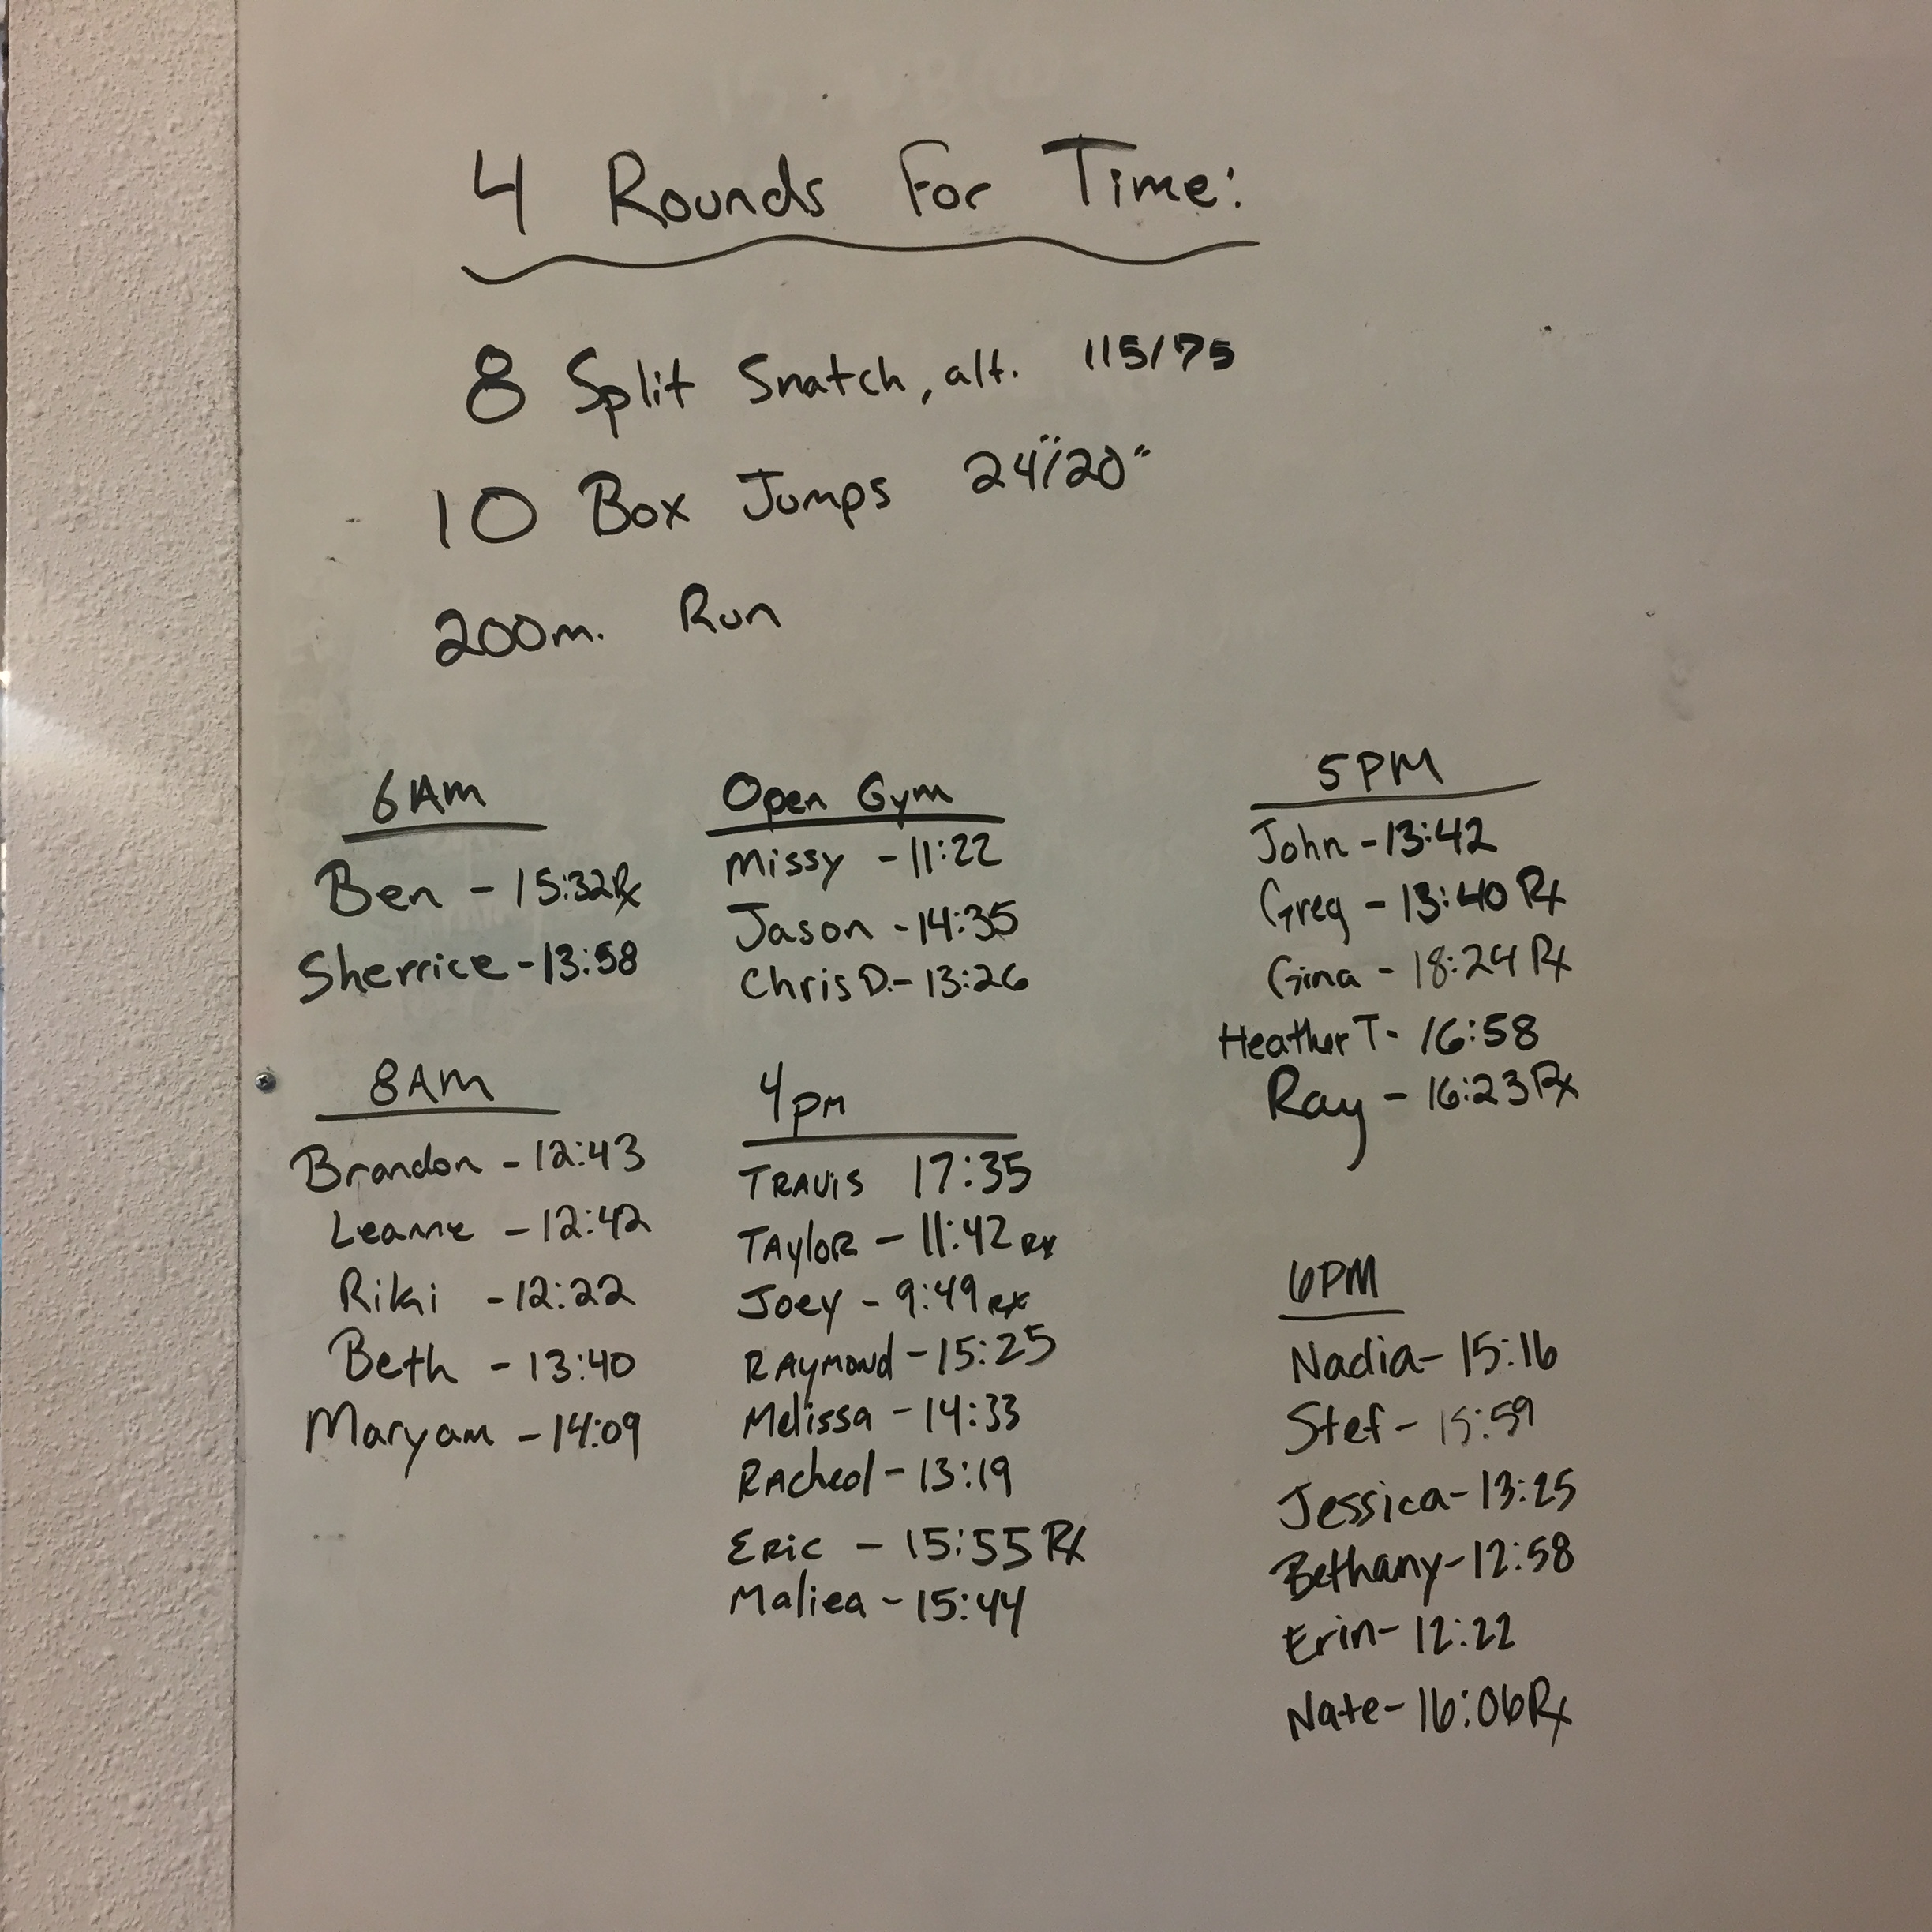 4 Rounds For Time:
8 Split Snatch, alt. 115/75
10 Box Jumps 24"/20"
200m. Run
6AM
Ben - 15:32 Rx
Sherrice - 13:58
8AM
Brandon - 12:43
Leanne - 12:42
Riki - 12:22
Beth - 13:40
Maryam - 14:09
Open Gym
Missy - 11:22
Jason - 14:35
Chris D. - 13:26
4pm
TRAVIS 17:35
TAylOR - 11:42 Rx
Joey - 9:49 Rx
RAymond - 15:25
Melissa - 14:33
RAcheol - 13:19
ERic - 15:55 Rx
Maliea - 15:44
5PM
John - 13:42
Greg - 13:40 Rx
Gina - 18:24 Rx
Heather T - 16:58
Ray - 16:23 Rx
6PM
Nadia - 15:16
Stef - 15:59
Jessica - 13:25
Bethany - 12:58
Erin - 12:22
Nate - 16:06 Rx